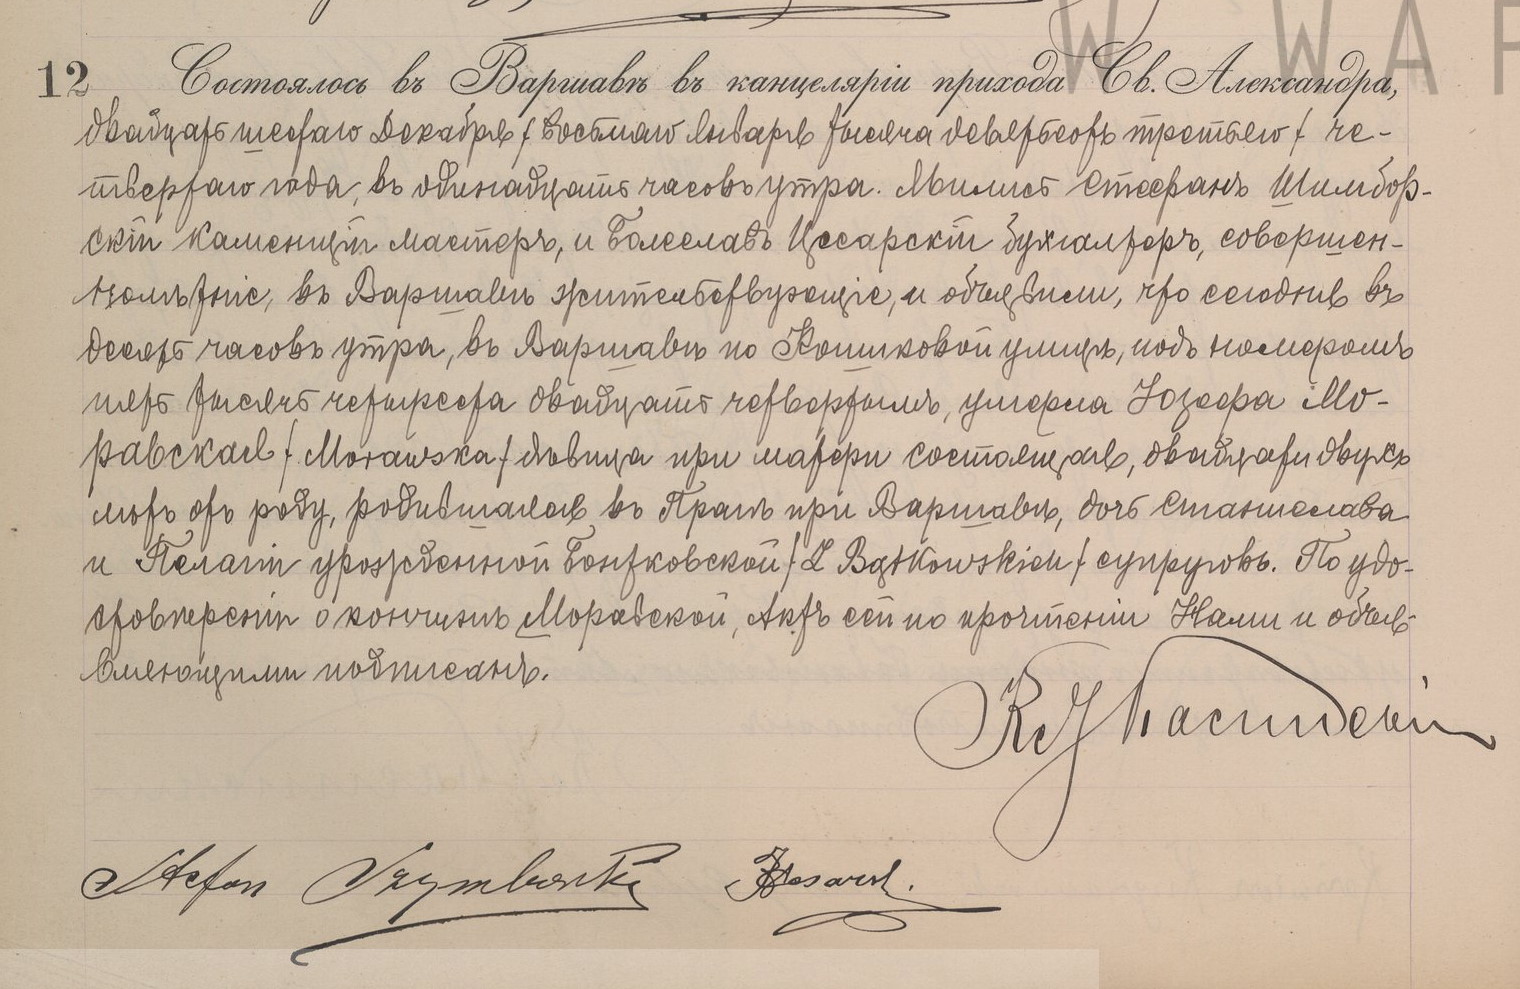 W WAR
12 Состоялось въ Варшавѣ въ канцеляріи прихода Св. Александра,
двадцать шестаго Декабря / восьмаго Января тысяча девятьсотъ третьяго / че-
твертаго года, въ одинадцать часовъ утра. Явились Стефанъ Шимбор-
скій каменщій мастеръ, и Болеславъ Цесарскій бухгалтеръ, совершен-
нолѣтніе, въ Варшавѣ жительствующіе, и объявили, что сегодня въ
десять часовъ утра, въ Варшавѣ по Кошиковой улицѣ, подъ номеромъ
пять тысячъ четыреста двадцать четвертымъ, умерла Юзефа Мо-
равская / Morawska / дѣвица при матери состоящая, двадцати двухъ
лѣтъ отъ роду, родившаяся въ Прагѣ при Варшавѣ, дочь Станислава
и Пелагіи урожденной Бонтковской / Z Bątkowskich / супруговъ. По удо-
стовѣреніи о кончинѣ Моравской, Актъ сей по прочтеніи Нами и объя-
вляющими подписанъ.
Stefan Szymborski